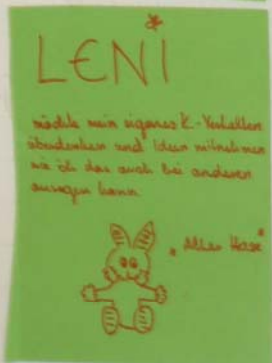 LENI
möchte mein eigenes K.-Verhalten
überdenken und Ideen mitnehmen
wie ich das auch bei anderen
anregen kann
"Alter Hase"